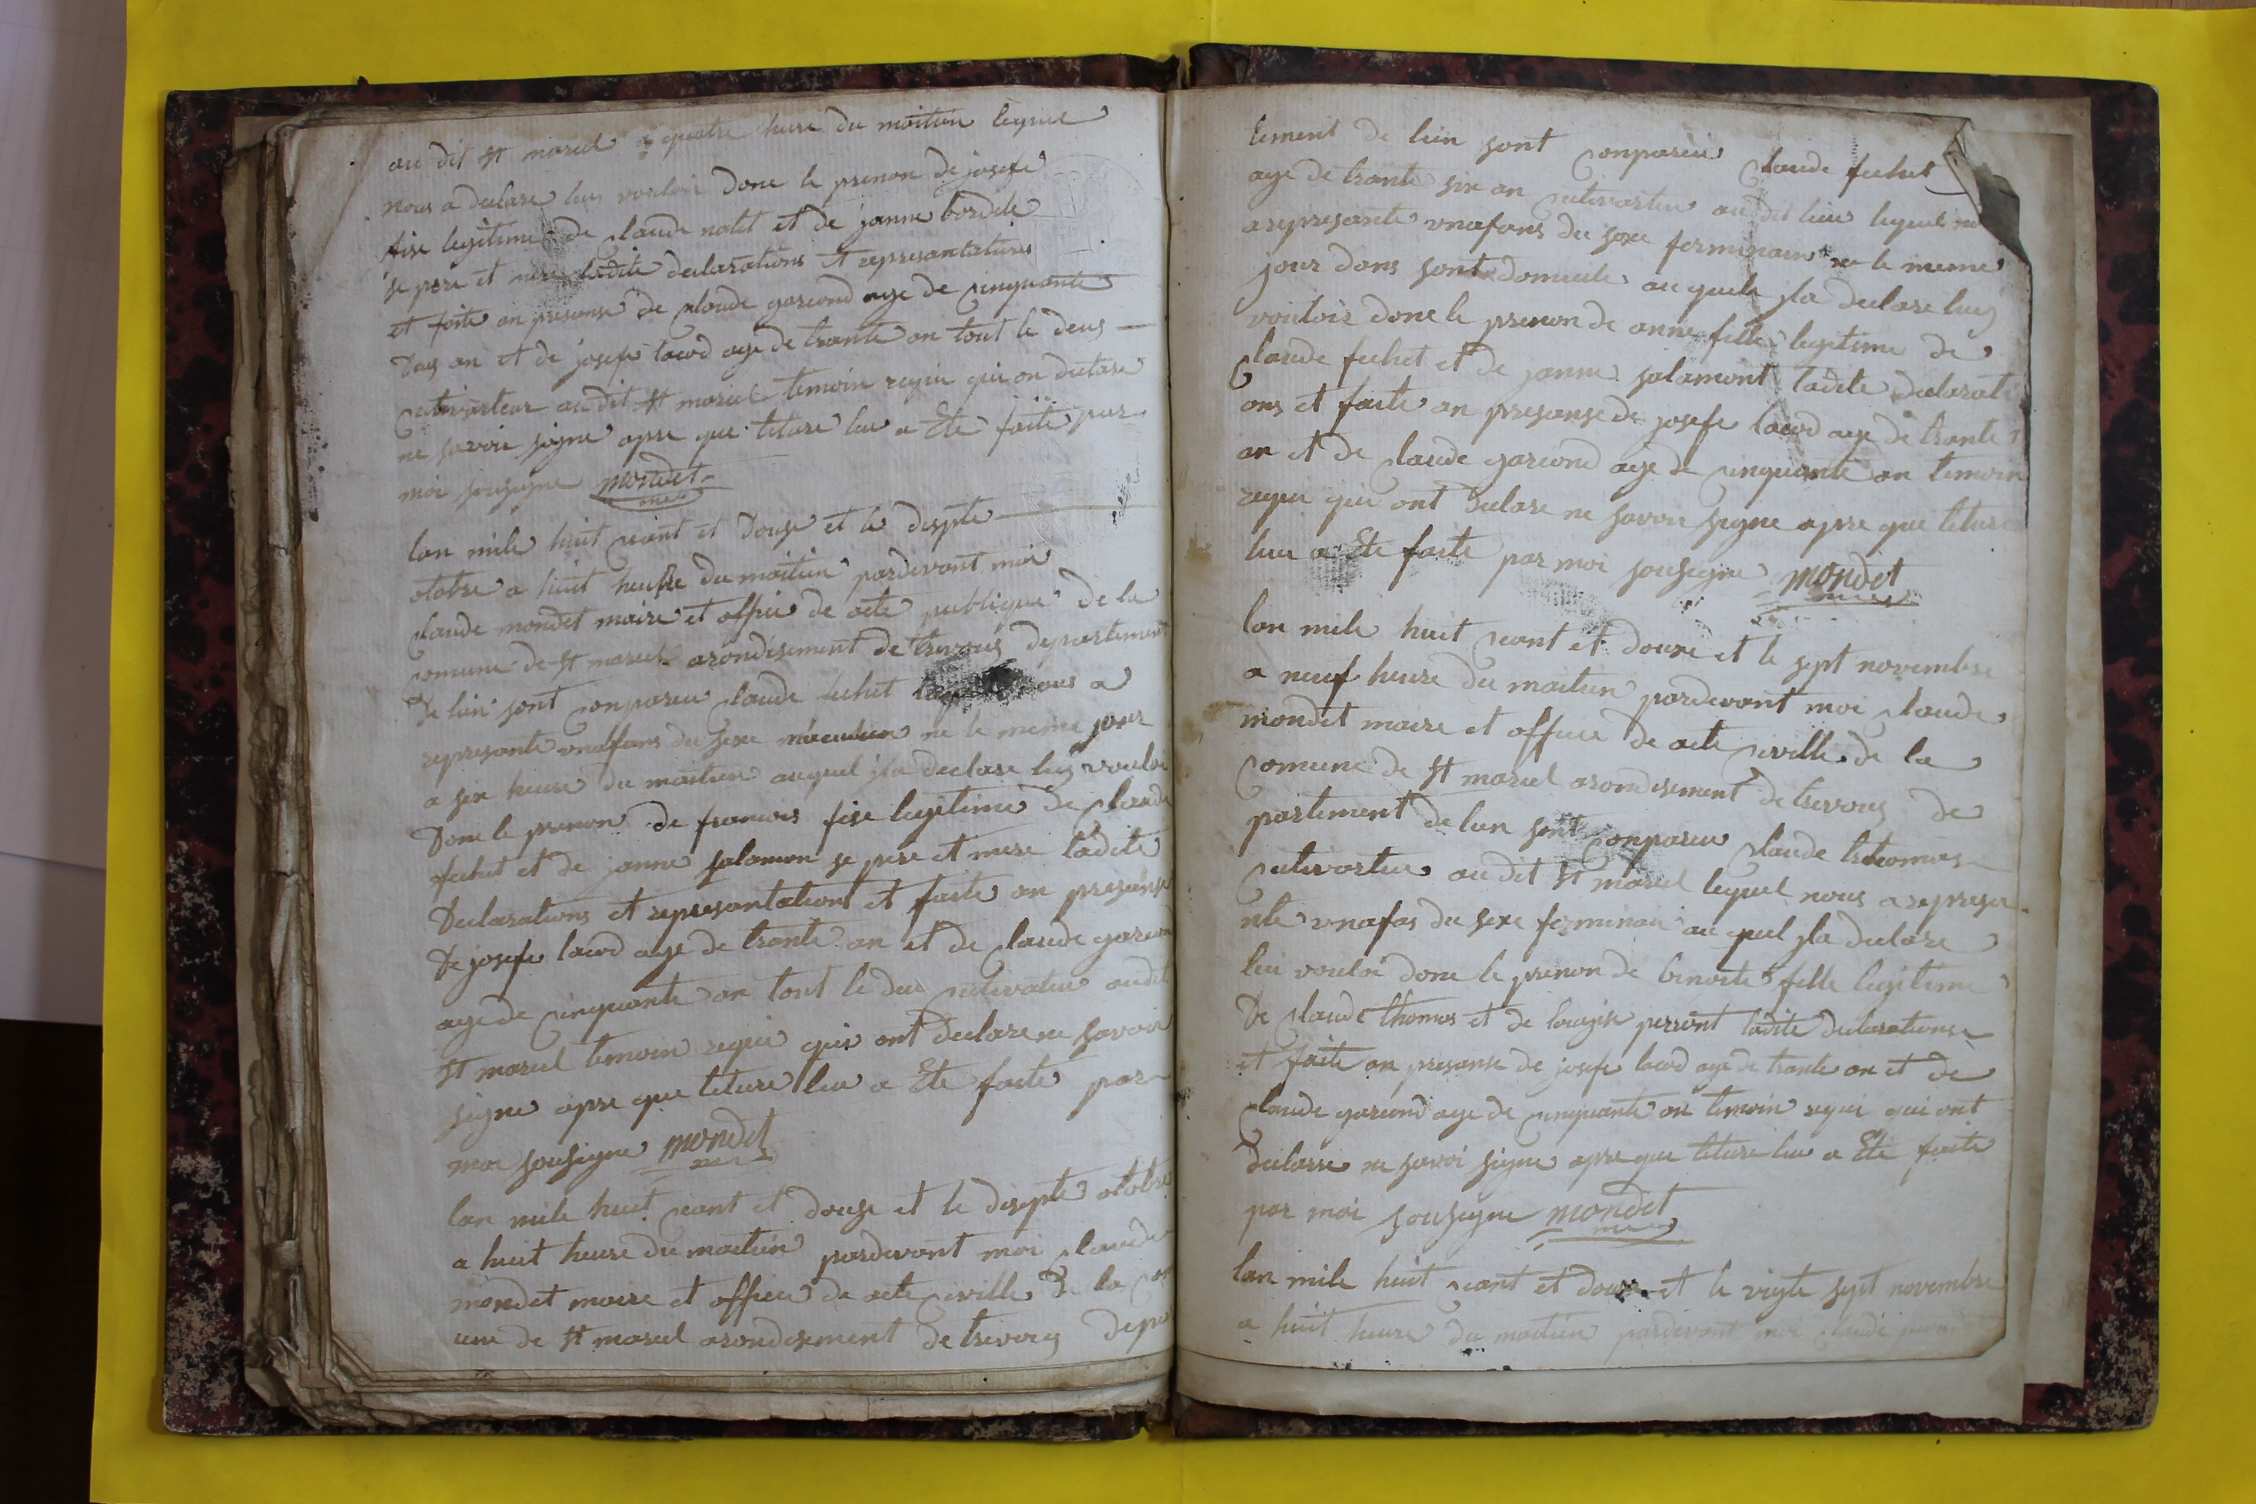 au dit st marcel a quatre heure du maitin lequel
nous a declare luy vouloir done le prenon de josefe
fise legitime de claude notet et de janne bordele
se pere et mere ladite declarations et representations
et faite an presanse de claude garcond age de cinquante
an et de josefe lacod age de trante an tout le deus
cutivarteur au dit st marcel temoin requi qui on declare
ne savoir signe apre que leture luu a Ete faite par
moi sousigne mondet
lan mile huit ceant et douse et le disepte
otobre a huit heure du maitin pardevant moi
claude mondet maire et office de acte publique de la
comune de st marcel arondisement de trevoug departement
de lain sont conpareu claude fechet nous a
represante vnafans du sexe macculin ne le meme jour
a six heure du maitin auquel jla declare luy vouloi
done le prenon de francois fise legitime de claude
fechet et de janne salamon se pere et mere ladite
declarations et represantationt et faite an presanse
de josefe lacod age de trante an et de claude garcon
age de cinquante an tout le deu cutivateu audit
st marcel temoin requi qui ont declare ne savoir
signe apre que leture luu a Ete faite par
moi sousigne mondet
lan mile huit ceant et douse et le disepte otobre
a huit heure du maitin pardevant moi claude
mondet maire et office de acte civille de la com
une de st marcel arondisement de trevoug depar
tement de lain sont conpareu claude fechet
age de trante six an cutivarteu au dit lieu lequel nou
a represante vnafans du sexe ferminain ne le meme
jour dans sont domicile au quele jla declare luy
vouloir done le prenon de anne fille legitime de
claude fechet et de janne salamont ladite declarati
ons et faite an presanse de josefe lacod age de trante
an et de claude garcond age de cinquante an temoin
requi qui ont declare ne savoir signe apre que leture
luu a Ete faite par moi sousigne mondet
lan mile huit ceant et douxe et le sept novembre
a neuf heure du maitin pardevant moi claude
mondet maire et office de acte civille de la
comune de st marcel arondisement de trevoug de
partement de lain sont conpareu claude thomas
cutivarteu au dit st marcel lequel nous a represa
nte vnafas du sexe ferminai au quel jla declare
lui vouloi done le prenon de benoite fille legitime
de claude thomas et de louyse perront ladite declarations
et faite an presanse de josefe lacod age de trante an et de
claude garcond age de cinquante an temoin requi qui ont
declare ne savoi signe apre que leture luu a Ete faite
par moi sousigne mondet
lan mile huit ceant et douxe et le vingte sept novembre
a huit heure du maitin pardevant moi claude